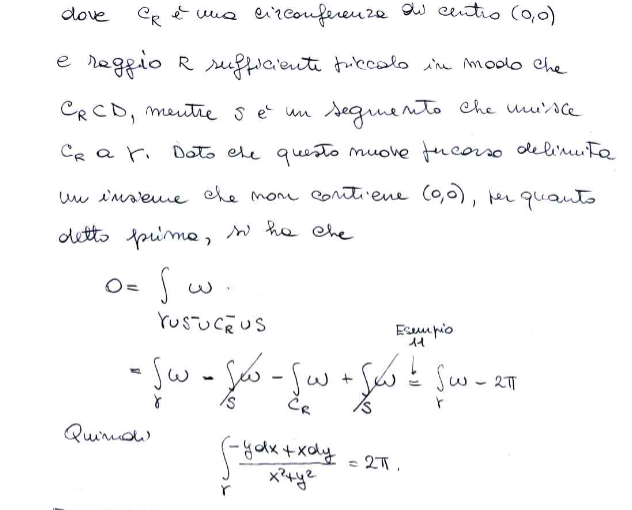 dove C_R è una circonferenza di centro (0,0)
e raggio R sufficiente piccolo in modo che
C_R ⊂ D, mentre s è un segmento che unisce
C_R a γ. Dato che questo nuovo percorso delimita
un insieme che non contiene (0,0), per quanto
detto prima, si ha che
0 = ∫_{γ∪s⁻∪C_R⁻∪s} ω.
Esempio 11
= ∫_γ ω - ∫_s ω - ∫_{C_R} ω + ∫_s ω = ∫_γ ω - 2π
Quindi
∫_γ (-ydx + xdy)/(x²+y²) = 2π.